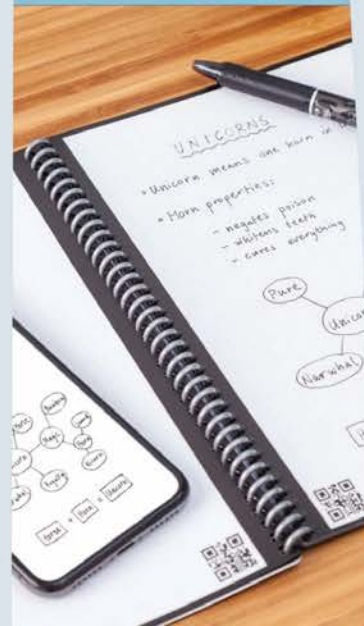 UNICORNS
• Unicorn means one horn in
• Horn properties:
- negates poison
- whitens teeth
- cures everything
Pure
Unicor
Narwhal
H
Horse + Horn = Unicorn